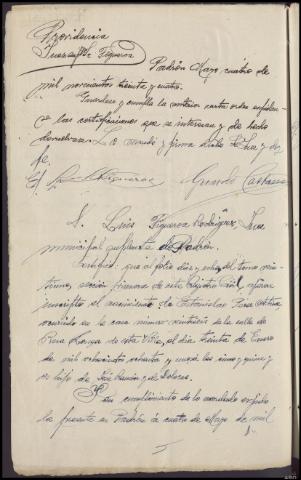 Providencia
Juez suplte Figueroa
Padrón Mayo, cuatro de
mil novecientos treinta y cuatro.
Guárdese y cumpla la anterior carta orden
las certificaciones que se interesan y de hecho
devuélvase. Lo mandó y firma dicho Sr Juez y doy
fe.
Figueroa Gerardo
D. Luis Figueroa Rodríguez, Juez
municipal suplente de Padrón.
Certifico: que al folio diez y ocho del tomo
sección primera de este Registro Civil, aparece
inscripto el nacimiento de Estanislao
ocurrido en la casa número de la calle de
de esta Villa, el día treinta de Enero
de mil ochocientos ochenta y nueve
es hijo de José Ramón y de Dolores.
Y en cumplimiento de lo mandado expido
la presente en Padrón a cuatro de Mayo de mil